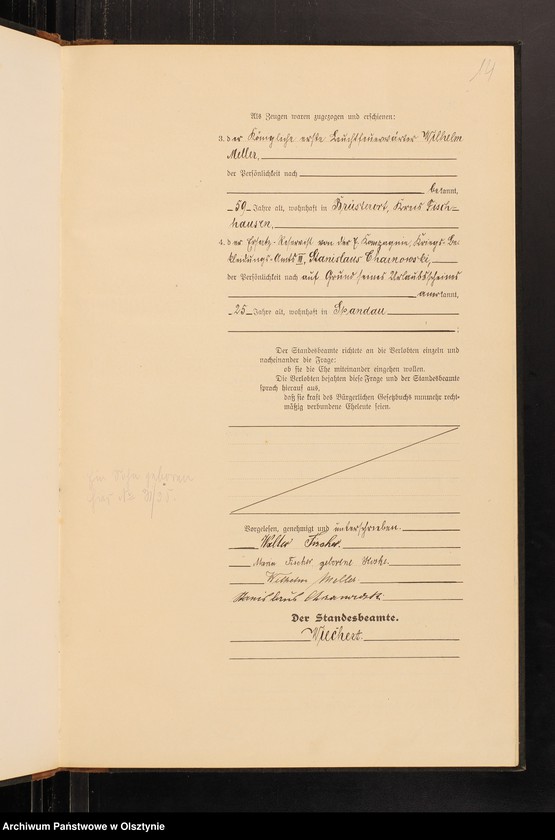 14
Als Zeugen waren zugezogen und erschienen:
3. der Königliche erste Leuchtfeuerwärter Wilhelm
Meller,
der Persönlichkeit nach
bekannt,
59 Jahre alt, wohnhaft in Brüsterort, Kreis Fisch=
hausen,
4. der Ersatz-Reservist von der 7. Kompagnie, Kriegs-Be
kleidungs-Amts III, Stanislaus Charnowski,
der Persönlichkeit nach auf Grund seines Urlaubsscheins
anerkannt,
25 Jahre alt, wohnhaft in Spandau
;
Der Standesbeamte richtete an die Verlobten einzeln und
nacheinander die Frage:
ob sie die Ehe miteinander eingehen wollen.
Die Verlobten bejahten diese Frage und der Standesbeamte
sprach hierauf aus,
daß sie kraft des Bürgerlichen Gesetzbuchs nunmehr recht=
mäßig verbundene Eheleute seien.
ein Sohn geboren
Vorgelesen, genehmigt und unterschrieben.
Walter Fischer.
Fischer geborene
Wilhelm Meller
Stanislaus
Der Standesbeamte.
Wiechert.
Archiwum Państwowe w Olsztynie